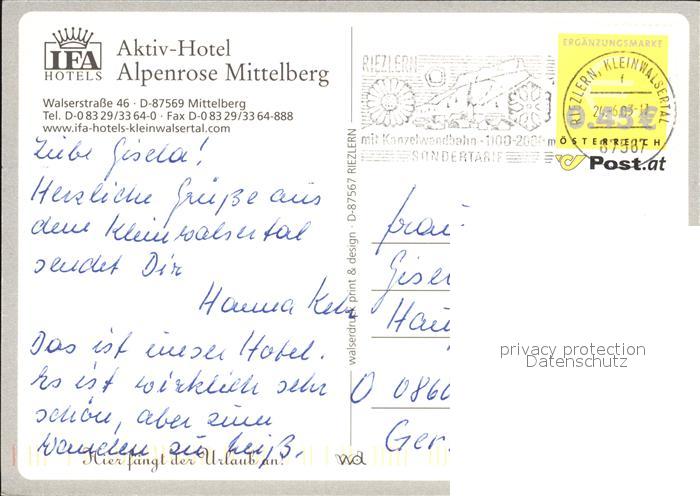 IFA
HOTELS
Aktiv-Hotel
Alpenrose Mittelberg
Walserstraße 46 · D-87569 Mittelberg
Tel. D-0 83 29/33 64-0 · Fax D-0 83 29/33 64-888
www.ifa-hotels-kleinwalsertal.com
Liebe Gisela!
Herzliche Grüße aus
dem Kleinwalsertal
sendet Dir
Hanna
Das ist unser Hotel.
Es ist wirklich sehr
schön, aber zum
Wandern zu heiß.
Hier fängt der Urlaub an!
walserdruck, print & design · D-87567 RIEZLERN
wd
RIEZLERN
mit Kanzelwandbahn
SONDERTARIF
ERGÄNZUNGSMARKE
0.43 €
ÖSTERREICH
RIEZLERN, KLEINWALSERTAL
f
87567
Post.at
Frau
Gisel
0 086
Ger
privacy protection
Datenschutz